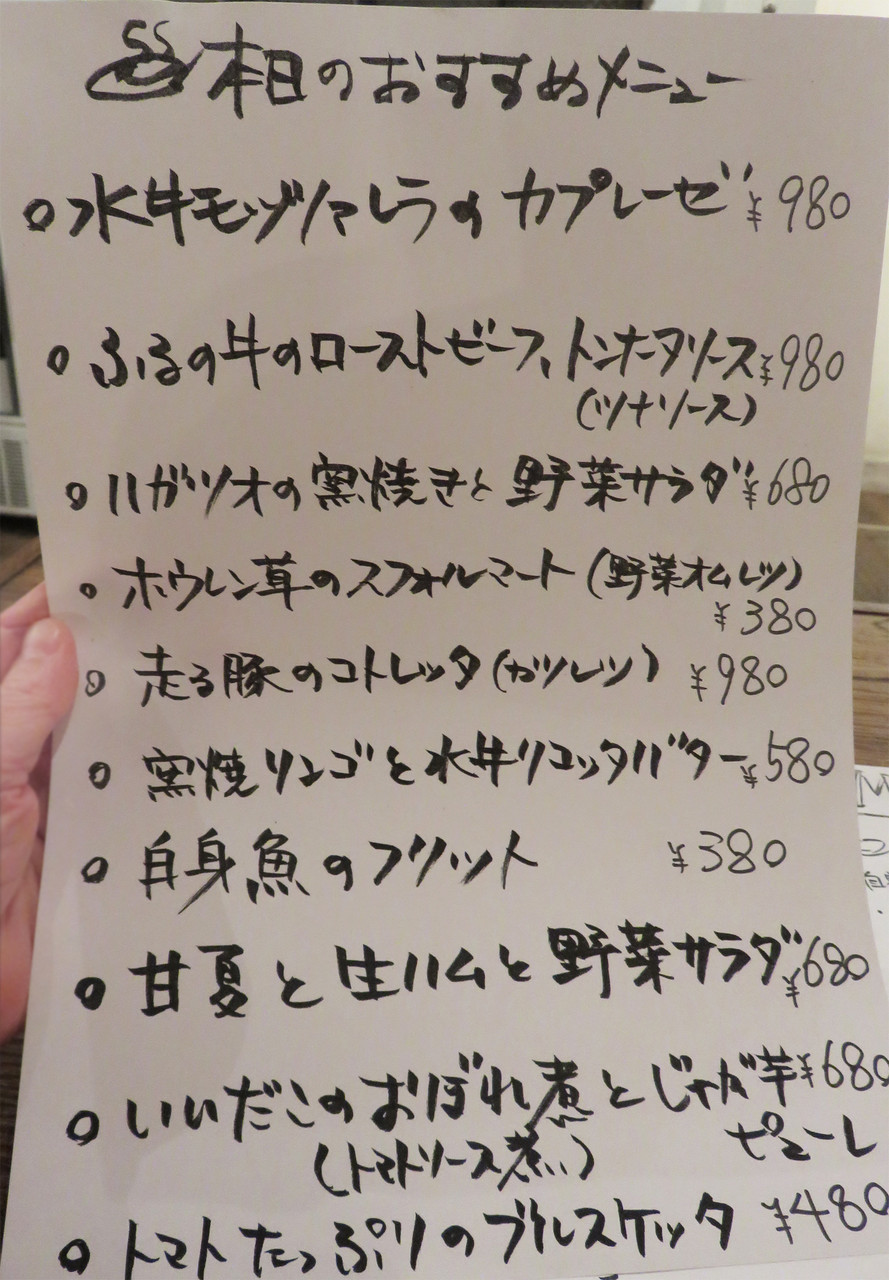 本日のおすすめメニュー
○水牛モッヅァレラのカプレーゼ ¥980
○ふるの牛のローストビーフ、トンナータソース ¥980
(ツナソース)
○ハガツオの窯焼きと野菜サラダ ¥680
○ホウレン草のスフォルマート(野菜オムレツ)
¥380
○走る豚のコトレッタ(カツレツ) ¥980
○窯焼リンゴと水牛リコッタバター ¥580
○白身魚のフリット ¥380
○甘夏と生ハムと野菜サラダ ¥680
○いいだこのおぼれ煮とじゃが芋 ¥680
(トマトソース煮) ピューレ
○トマトたっぷりのブルスケッタ ¥480